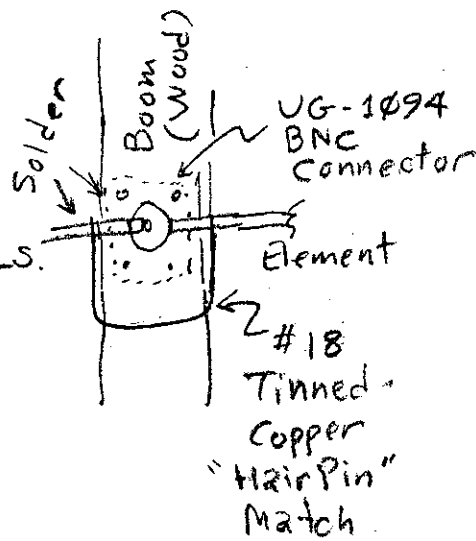 Solder
Boom
(Wood)
UG-1094
BNC
Connector
Element
S.
#18
Tinned-
Copper
"HairPin"
Match